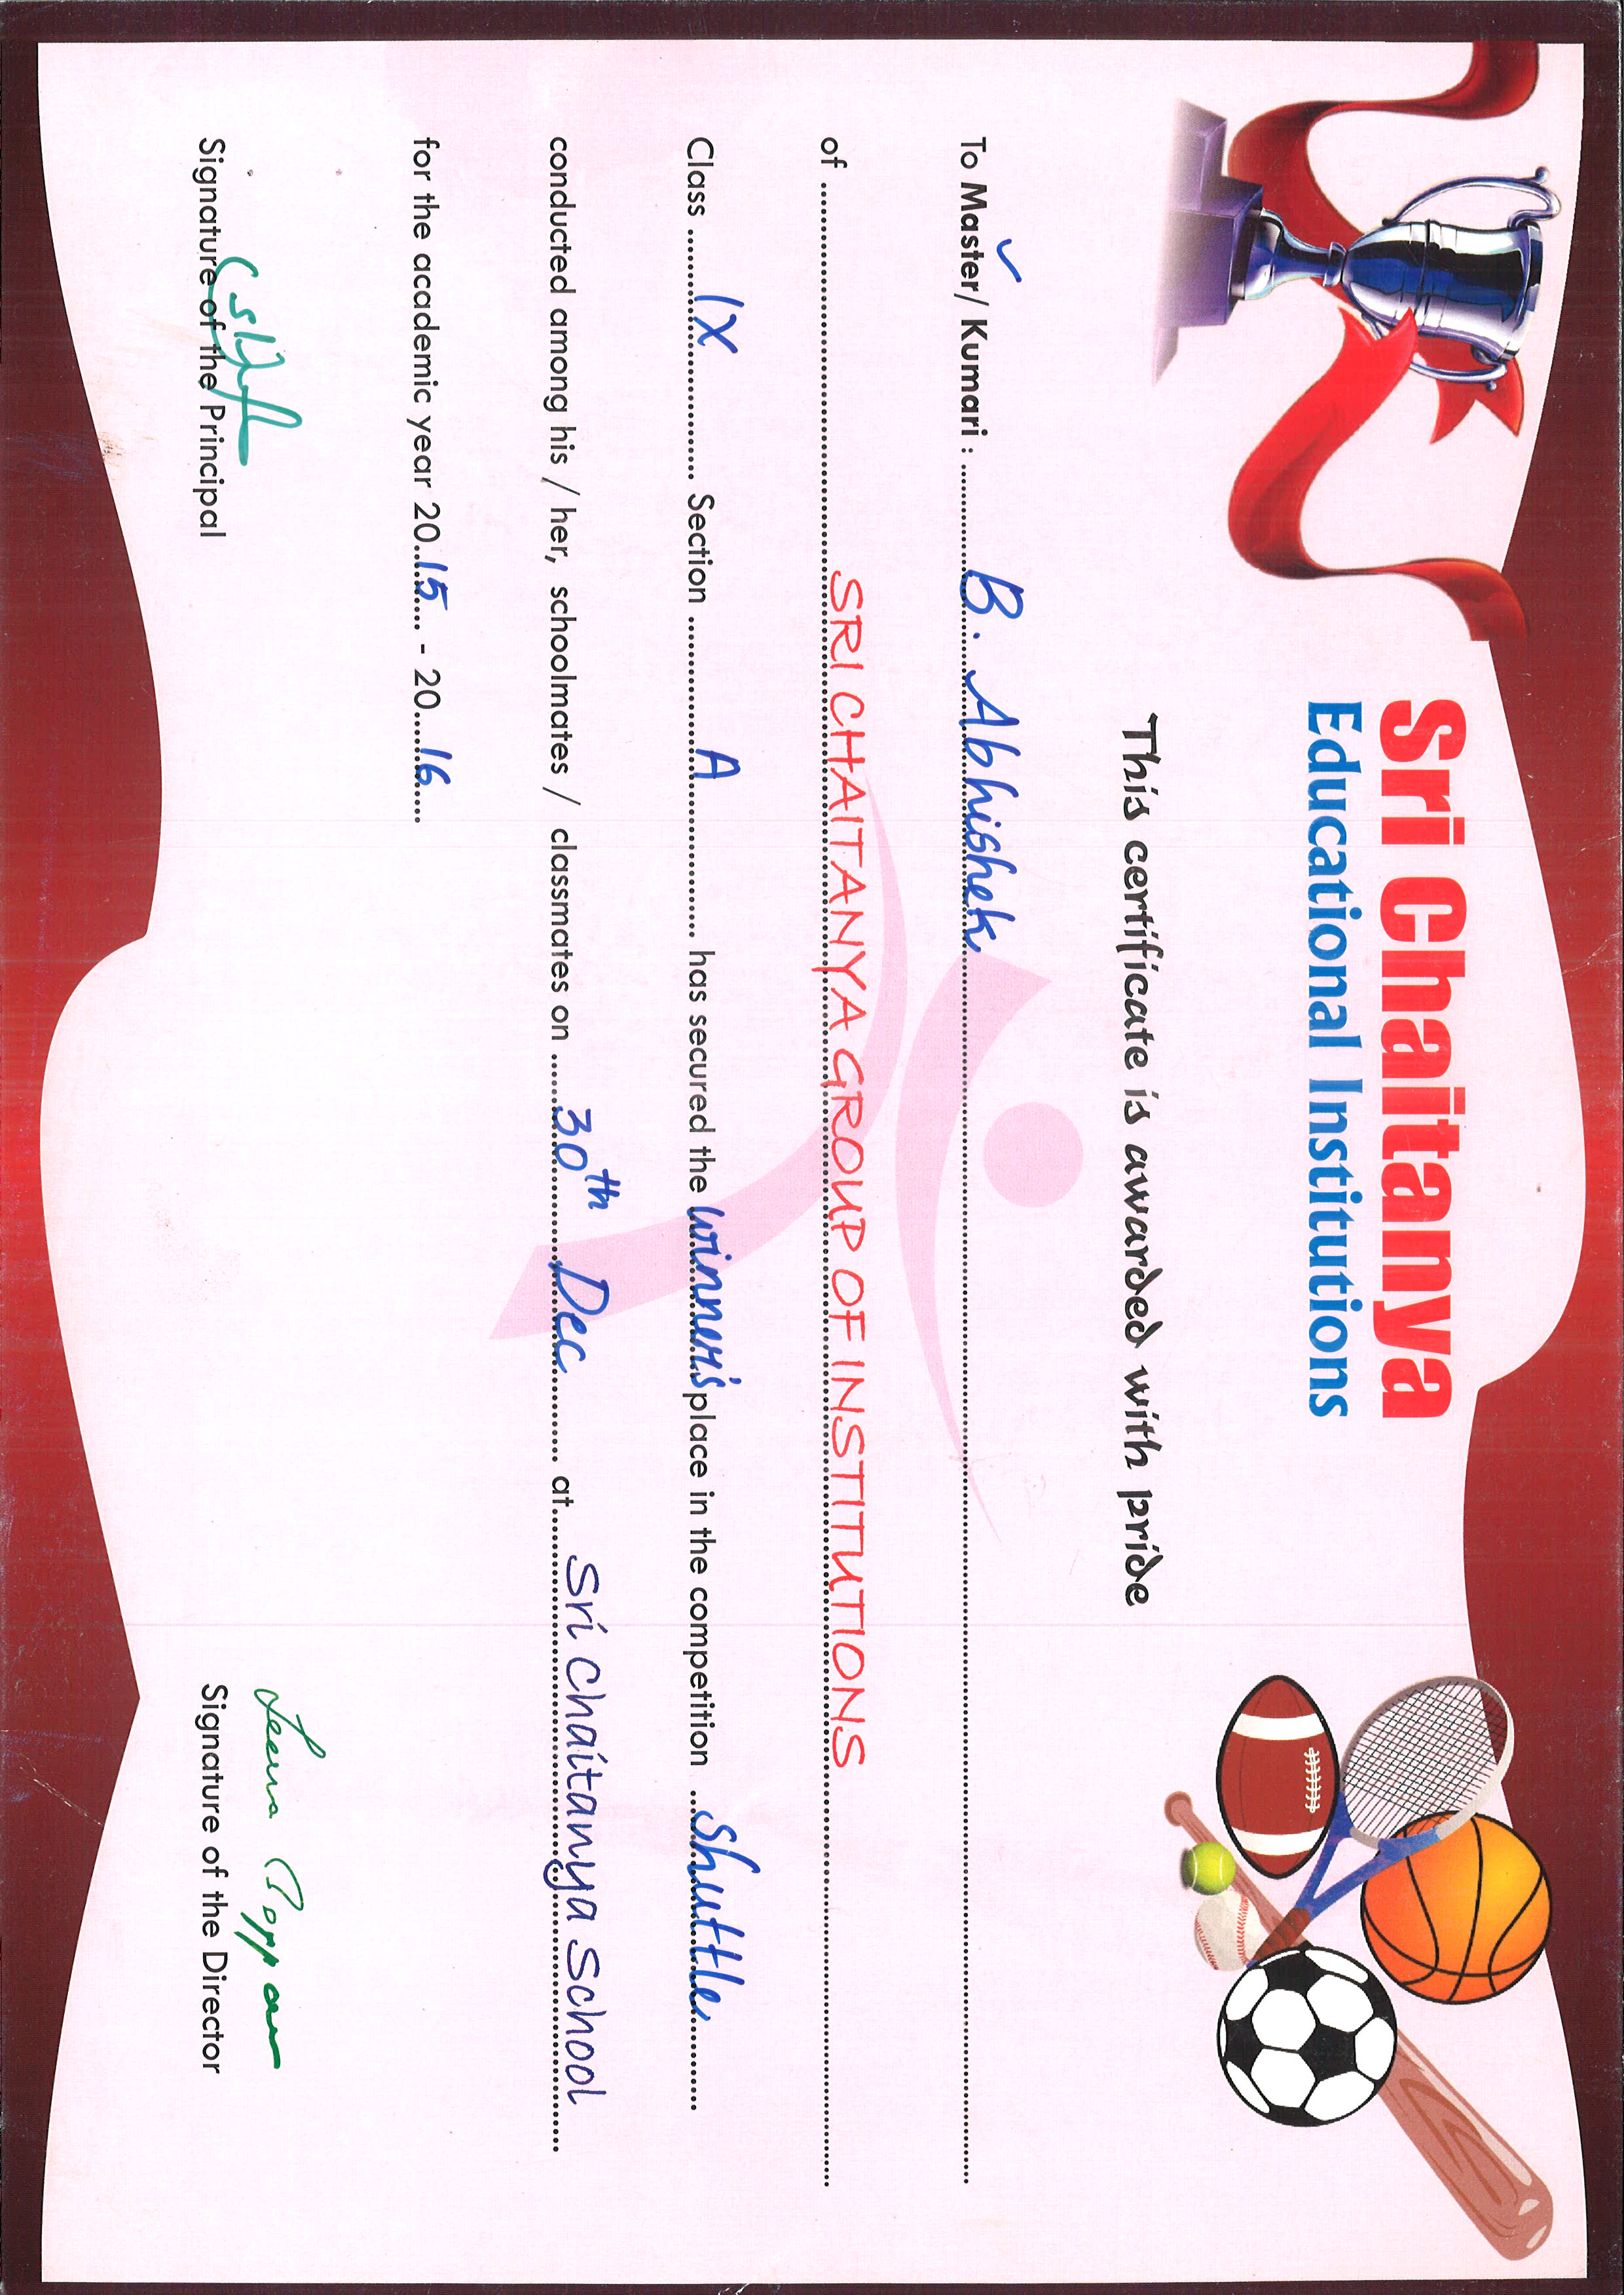 Sri Chaitanya
Educational Institutions
This certificate is awarded with pride
To Master/ Kumari : B. Abhishek
of SRI CHAITANYA GROUP OF INSTITUTIONS
Class IX Section A has secured the winner's place in the competition shuttle
conducted among his / her, schoolmates / classmates on 30th Dec at Sri Chaitanya School
for the academic year 2015 - 2016
Signature of the Principal
Signature of the Director